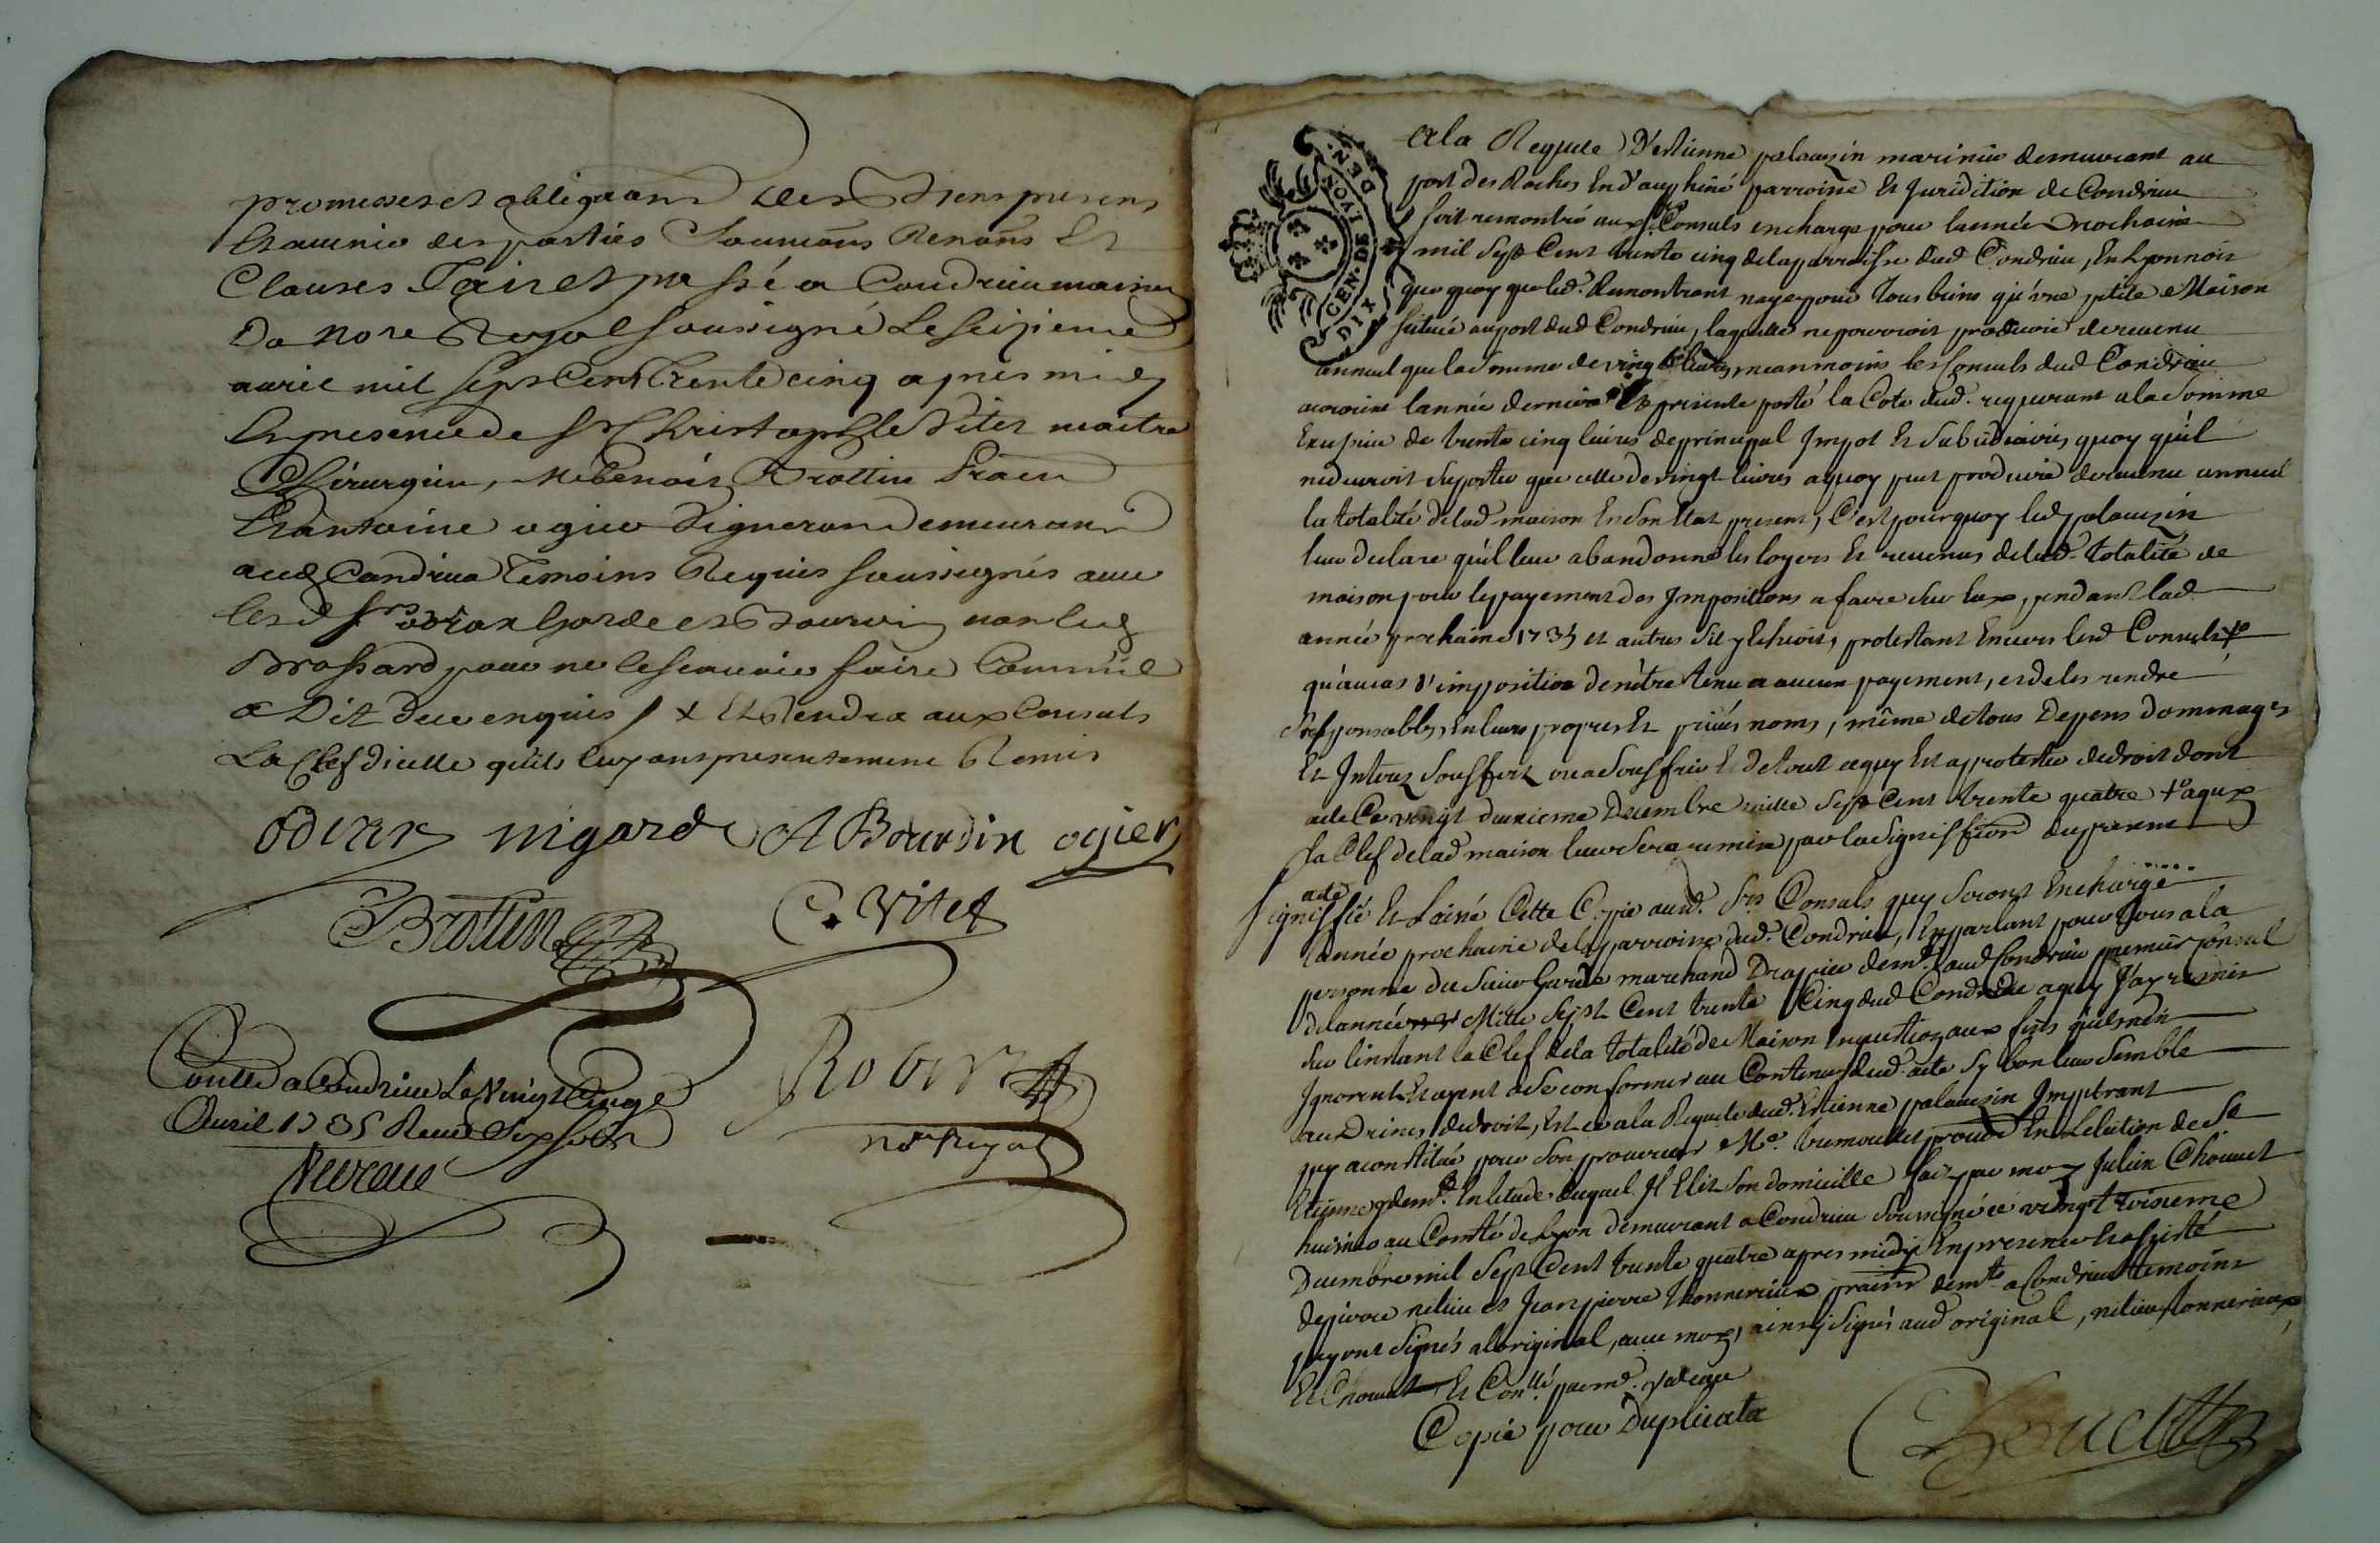 promesses et obligaons des biens presens
Et avenir des parties Soumons Renons Et
Clauses Fait et passé a Condrieu maison
Du note Royal soussigné Le seizieme
avril mil sept Cent Trente cinq apres midy
En presence de Sr Christophle Vitet maitre
Chirurgien, Me Benoit Brottin Praen
Et antoine ogier Vigneron demeurans
aud Condrieu Temoins Requis soussignés avec
lesd Srs garde et Bourdin non led
Brossard pour ne le scavoir faire Comm'il
a Dit duement enquis / x Et Rendra aux Consuls
La Clef d'icelle qu'ils luy ont presentement Remis
odrar nigarde A Bourdin ogier
Brottin C. Vitet
Conllé a Condrieu Le Vingt Cinqe
Avril 1735 Receu Six sols
Robert
nore Royal
GEN. DE LYON DEN.
DIX
A la Requete D'estienne palauzin marinier demeurant au
port des Roches En d'auphiné parroisse Et Juridition de Condrieu
soit remontré aux Srs Consuls en charge pour l'année prochaine
mil Sept Cent trente cinq de la parroisse dud Condrieu, En Lyonnois
que quoy que led. Remontrant naye pour Tous biens qu'une ptite Maison
scituée au port dud Condrieu, laquelle ne pourroit produire de revenu
annuel que la Somme de vingt livres, neanmoins les Consuls dud Condrieu
auroient l'année derniere Et presente porté la Cote dud. requerant a la Somme
de trente cinq livres de principal Impot Et Subsidiaires quoy qu'il
ne devroit Suporter que celle de vingt livres a quoy peut produire de revenu annuel
la totalité de lad maison En Son Etat present, C'est pourquoy led palauzin
leur declare qu'il leur abandonne les loyers Et revenus de lad. totalité de
maison pour le payement des Impositions a faire Sur Eux, pendant lad
année prochaine 1735 et autres S'il y Echeoit, protestant Envers lesd Consuls
qu'au cas d'imposition de n'être tenu a aucun payement, et de les rendre
responsables, En leurs propres Et privés noms, même de tous Depens dommages
Et Interez Soufferts ou a Souffrir Et de tout ce quy Est a protester de droit dont
acte Ce vingt deuxieme Decembre mille Sept Cent trente quatre
la Clef de lad maison leur Sera remise par la Signiffion du present
acte
Signiffié Et Laissé Cette Coppie ausd. Srs Consuls quy Seront En charge
l'année prochaine de la parroisse dud. Condrieu, En parlant pour Tous a la
personne du Sieur Garde marchand Drappier demt aud Condrieu premier Consul
de l'année Mille Sept Cent trente Cinq dud Condrieu a quy J'ay remis
Sur l'instant la Clef de la totalité de Maison En question aux fins qu'ils n'en
Ignorent Et ayent a Se conformer au Contenu dud acte Sy bon leur Semble
de droit, Et ce a la Requete dud. Estienne palauzin Impetrant
quy a constitué pour Son procureur Me. tremoullet procur En L'election de St
Etienne y demt. En l'etude duquel Il Elit Son domicille fait par moy Julien Chouuet
huissier au Comté de Lyon demeurant a Condrieu Soussigné ce vingt troisieme
Decembre mil Sept Cent trente quatre apres midy En presence Et assisté
de pierre et Jean pierre Thonnerieux praciens demts a Condrieu temoins
quy ont Signés a l'original, avec moy, ainsy Signé aud original,
Et Chouuet Et Conllé par
Copie pour Duplicata
Chouuet